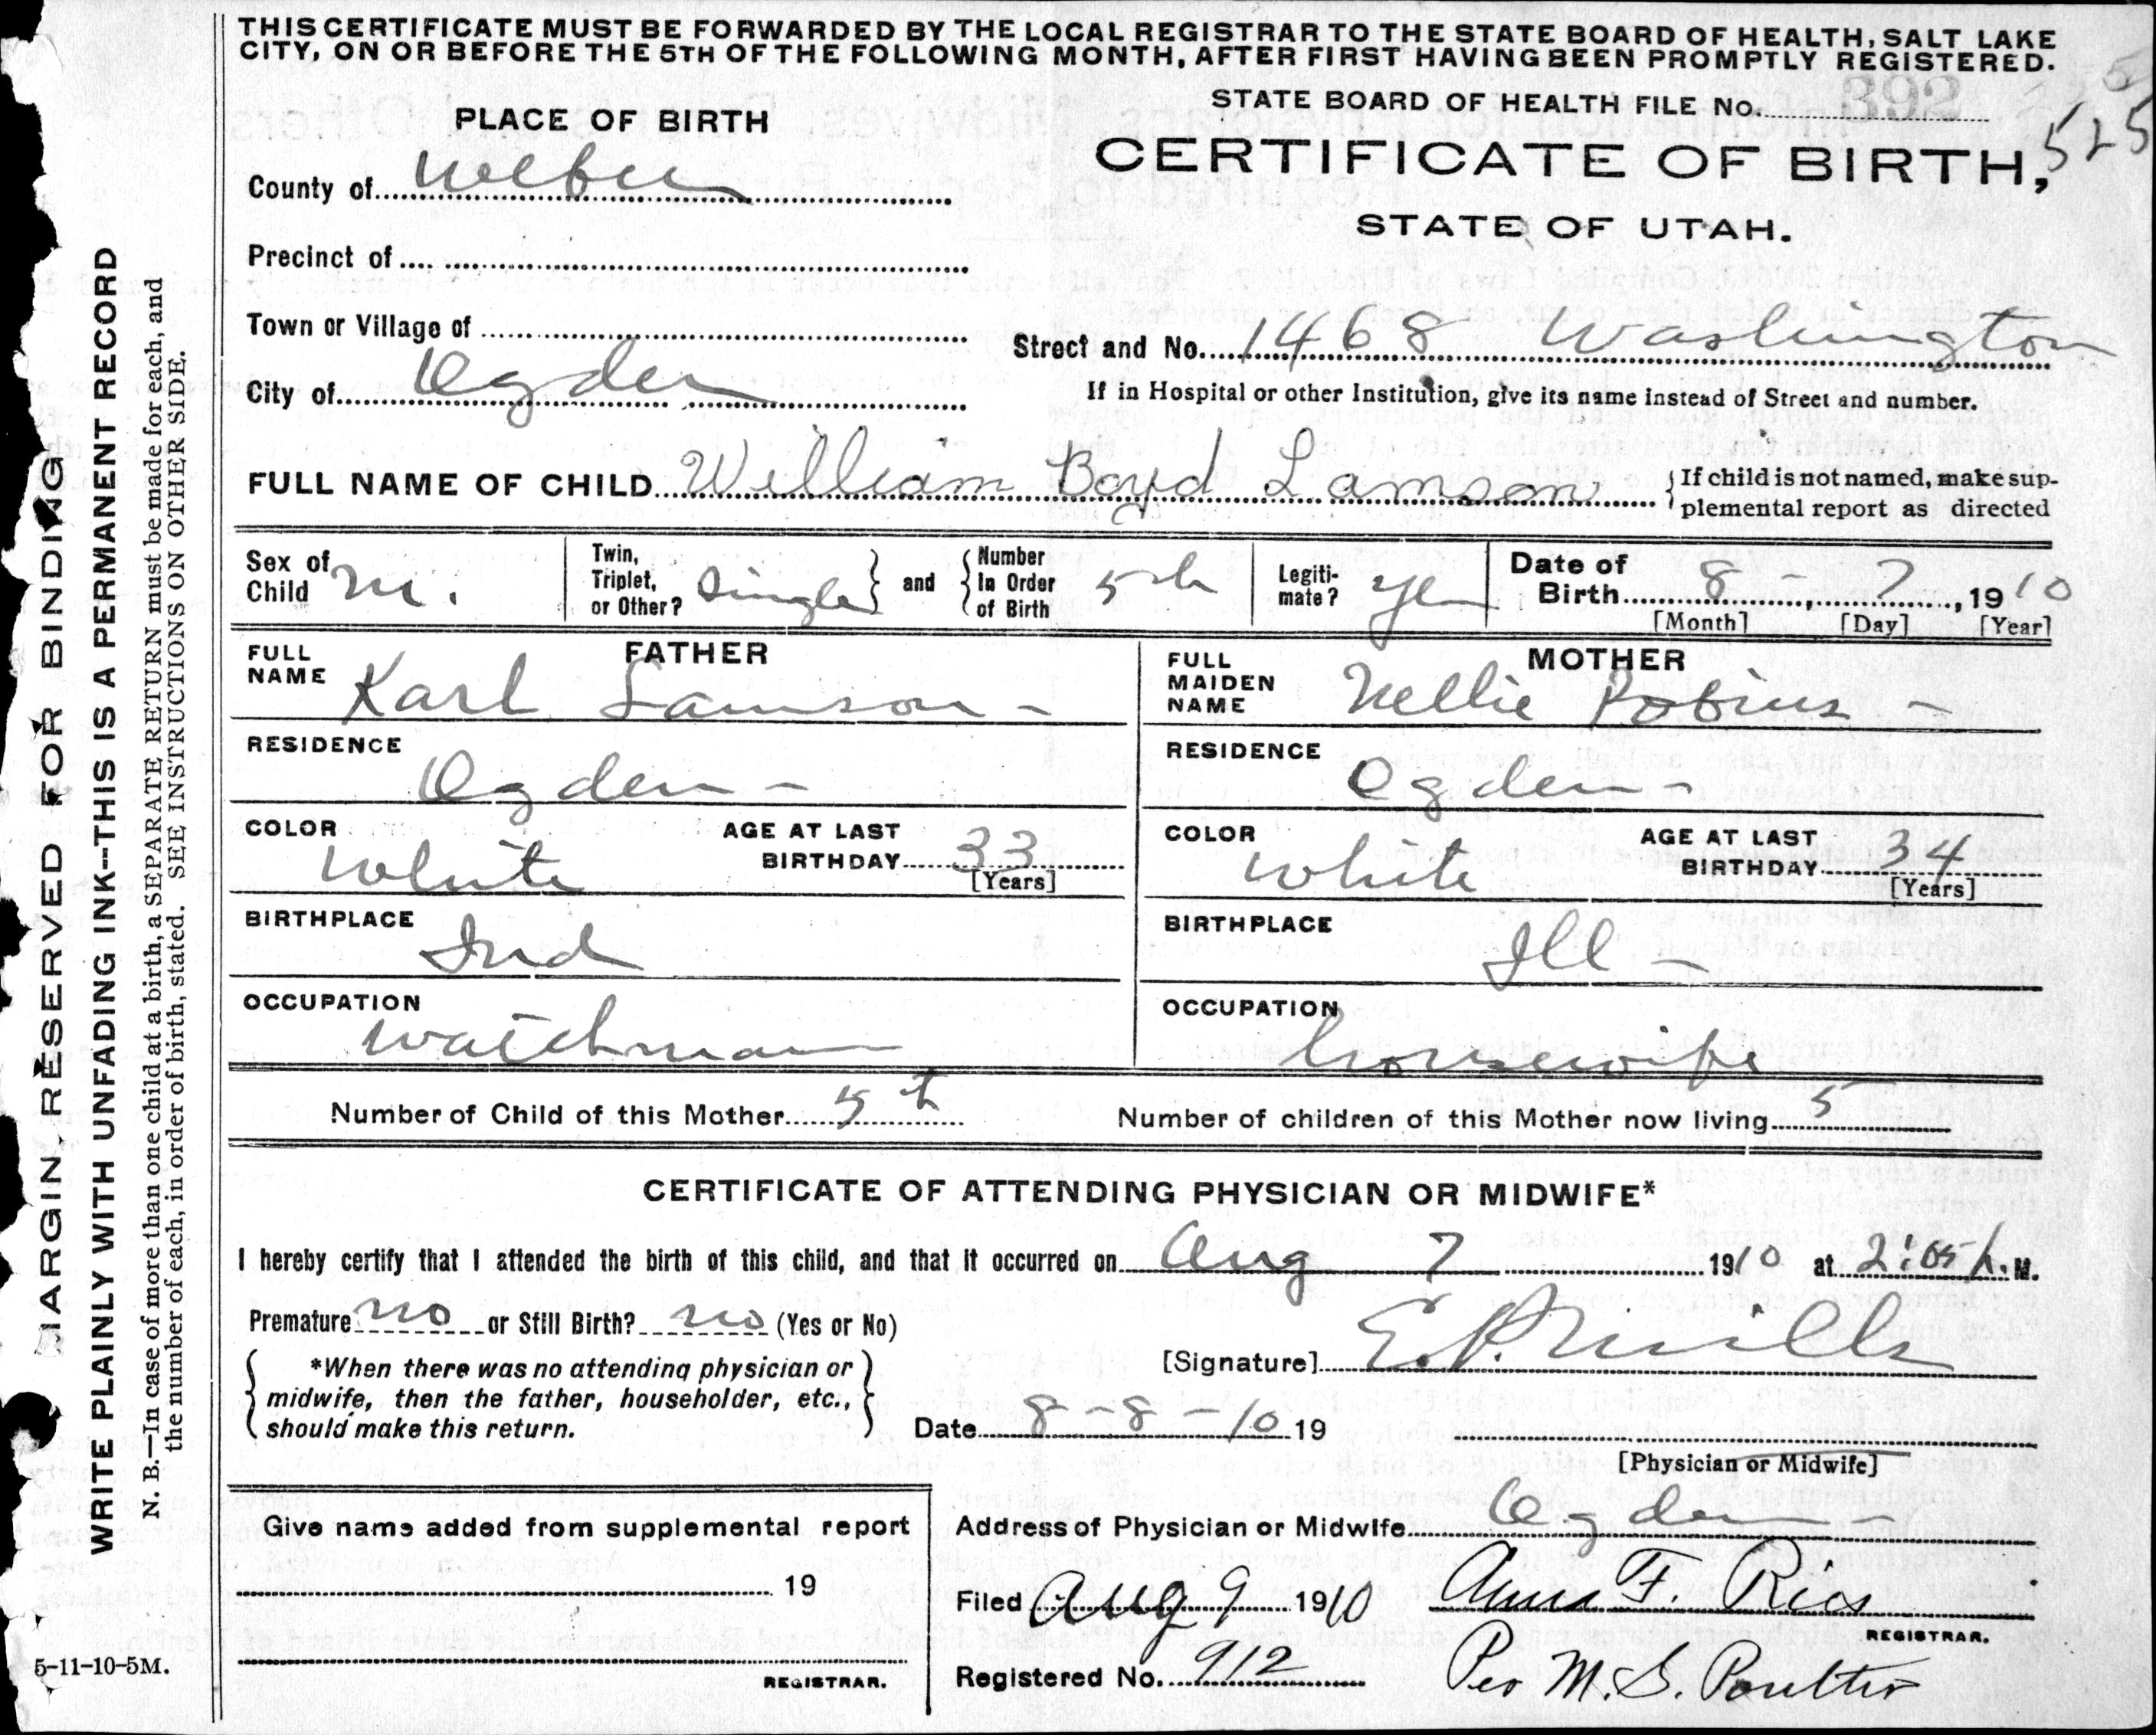 THIS CERTIFICATE MUST BE FORWARDED BY THE LOCAL REGISTRAR TO THE STATE BOARD OF HEALTH, SALT LAKE
CITY, ON OR BEFORE THE 5TH OF THE FOLLOWING MONTH, AFTER FIRST HAVING BEEN PROMPTLY REGISTERED.
STATE BOARD OF HEALTH FILE No. 392
525
PLACE OF BIRTH
CERTIFICATE OF BIRTH,
STATE OF UTAH.
County of Weber
Precinct of
Town or Village of
Street and No. 1468 Washington
City of Ogden
If in Hospital or other Institution, give its name instead of Street and number.
FULL NAME OF CHILD William Boyd Lamson
If child is not named, make sup-
plemental report as directed
Sex of Child M.
Twin, Triplet, or Other? Single and Number In Order of Birth 5th
Legiti-mate? Yes
Date of Birth 8 - 7, 1910
[Month] [Day] [Year]
FATHER
FULL NAME Karl Lamson -
RESIDENCE Ogden -
COLOR White AGE AT LAST BIRTHDAY 33
[Years]
BIRTHPLACE Ind
OCCUPATION Watchman
MOTHER
FULL MAIDEN NAME Nellie Robins -
RESIDENCE Ogden -
COLOR White AGE AT LAST BIRTHDAY 34
[Years]
BIRTHPLACE Ill -
OCCUPATION housewife
Number of Child of this Mother 5th Number of children of this Mother now living 5
CERTIFICATE OF ATTENDING PHYSICIAN OR MIDWIFE*
I hereby certify that I attended the birth of this child, and that it occurred on Aug 7 1910 at 2:05 P. M.
Premature no or Still Birth? no (Yes or No)
*When there was no attending physician or
midwife, then the father, householder, etc.,
should make this return.
[Signature] E. P. Mills
Date 8 - 8 - 10 19
[Physician or Midwife]
Give name added from supplemental report
19
REGISTRAR.
Address of Physician or Midwife Ogden -
Filed Aug 9 1910 Anna F. Rios
REGISTRAR.
Registered No. 912 Per M. S. Poulter
MARGIN RESERVED FOR BINDING
WRITE PLAINLY WITH UNFADING INK--THIS IS A PERMANENT RECORD
N. B.—In case of more than one child at a birth, a SEPARATE RETURN must be made for each, and
the number of each, in order of birth, stated. SEE INSTRUCTIONS ON OTHER SIDE.
5-11-10-5M.